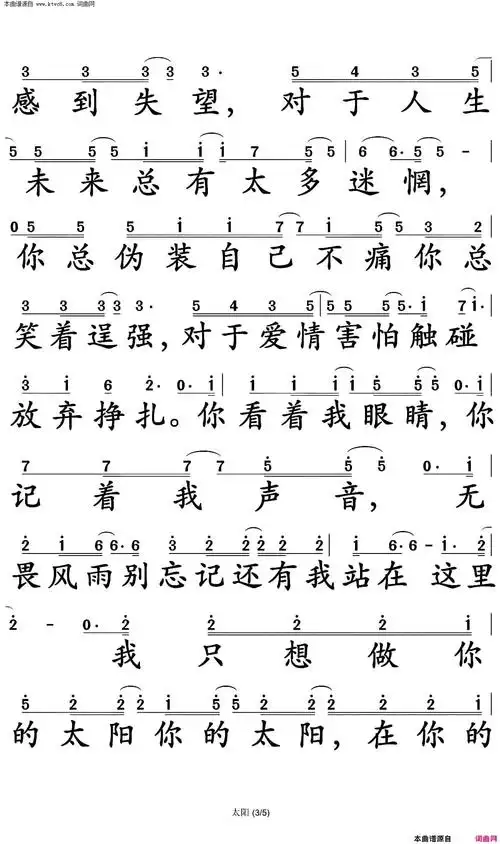 本曲谱源自 www.ktvc8.com 词曲网
3 3 3 3 3· 5 4 3 5
感到失望，对于人生
5 5 5 i i i 7 5 5 | 6 6· 5 –
未来总有太多迷惘，
0 5 5 5 i i 7 i i 5 5 3 2
你总伪装自己不痛你总
3 3 3 3 3· 5 4 3 5 | 5 5 5 5· i 7 i·
笑着逞强，对于爱情害怕触碰
3 i 6 2· 0· i | i i i 5 5 5 0· i
放弃挣扎。你看着我眼睛，你
7 7 7 7 5 5 5 0· i
记着我声音，无
2 i 6 6· 3 2 2 2 2 i | 6 – i· 2
畏风雨别忘记还有我站在 这里
2 – 0· 2 2 2 2 i
我只想做你
5 2 2 2 i 5 5 2 2 2 2 i
的太阳你的太阳，在你的
太阳 (3/5)
本曲谱源自 词曲网